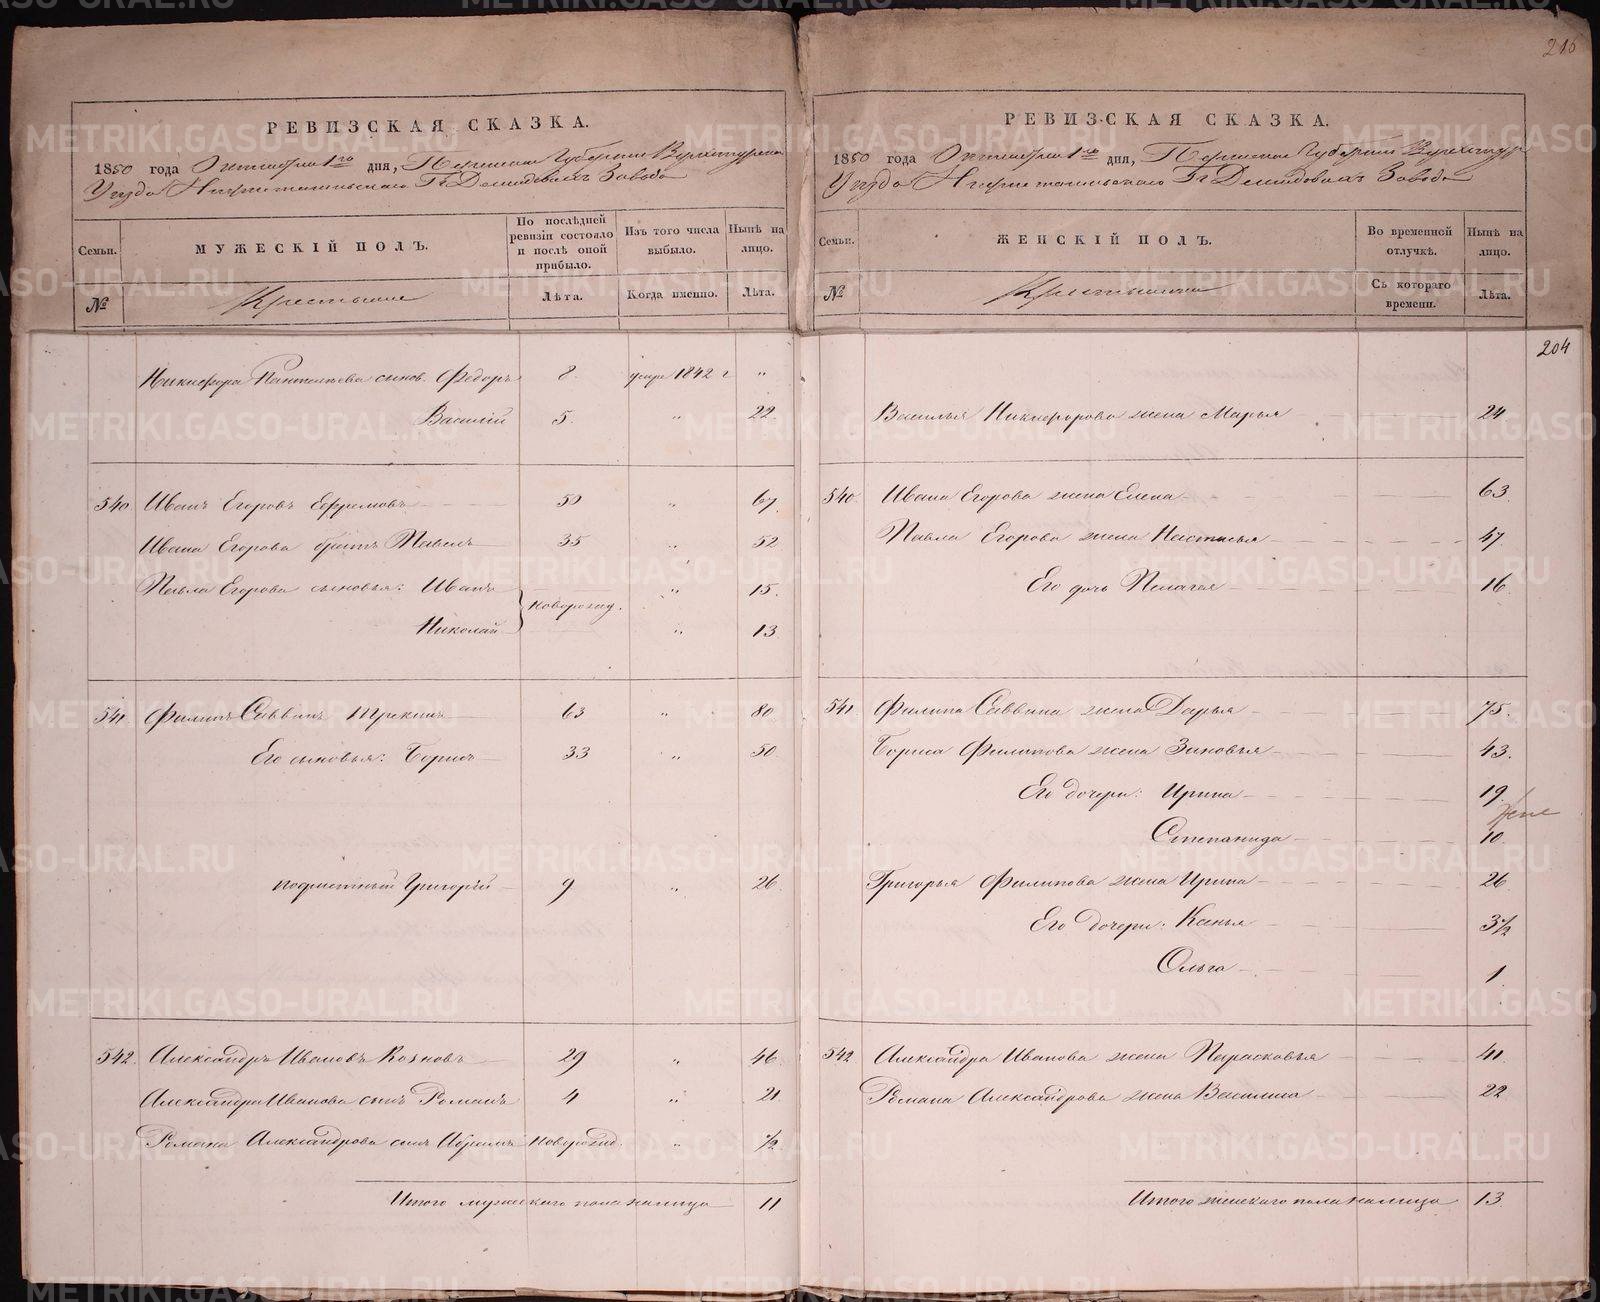 215
РЕВИЗСКАЯ СКАЗКА.
1850 года Октября 1го дня, Пермской Губернии Верхотурскаго
Уезда Нижнетагильскаго Гг. Демидовыхъ Завода
Семьи.
МУЖЕСКІЙ ПОЛЪ.
По послѣдней ревизіи состояло и послѣ оной прибыло.
Изъ того числа выбыло.
Нынѣ на лицо.
№
Крестьяне
Лѣта.
Когда именно.
Лѣта.
Никифора Пантелѣева сынов. Федоръ 8. умре 1842 г "
Василій 5. " 22
540. Иванъ Егоровъ Ефремовъ 50 " 67
Ивана Егорова братъ Павелъ 35 " 52
Павла Егорова сыновья: Иванъ новорожд. " 15.
Николай " 13
541. Филипъ Саввинъ 63 " 80
Его сыновья: Борисъ 33 " 50
Григорій 9 " 26.
542. Александръ Ивановъ 29 " 46
Александра Иванова сынъ Романъ 4 " 21
Романа Александрова сынъ Абрамъ новорожд. " 1/2
Итого мужескаго пола налицо 11
РЕВИЗСКАЯ СКАЗКА.
1850 года Октября 1го дня, Пермской Губернии Верхотур
Уезда Нижнетагильскаго Гг. Демидовыхъ Завода
Семьи.
ЖЕНСКІЙ ПОЛЪ.
Во временной отлучкѣ.
Нынѣ на лицо.
№
Крестьянки
Съ котораго времени.
Лѣта.
204
Василья Никифорова жена Марья 24
540. Ивана Егорова жена Елена 63
Павла Егорова жена Настасья 47
Его дочь Пелагея 16
541 Филипа Саввина жена Дарья 75.
Бориса Филипова жена Зиновья 43.
Его дочери: Ирина 19
Степанида 10
Григорья Филипова жена Ирина 26
Его дочери: Ксенья 3 1/2
Ольга 1
542 Александра Иванова жена Парасковья 41
Романа Александрова жена Василиса 22
Итого женскаго пола налицо 13
METRIKI.GASO-URAL.RU